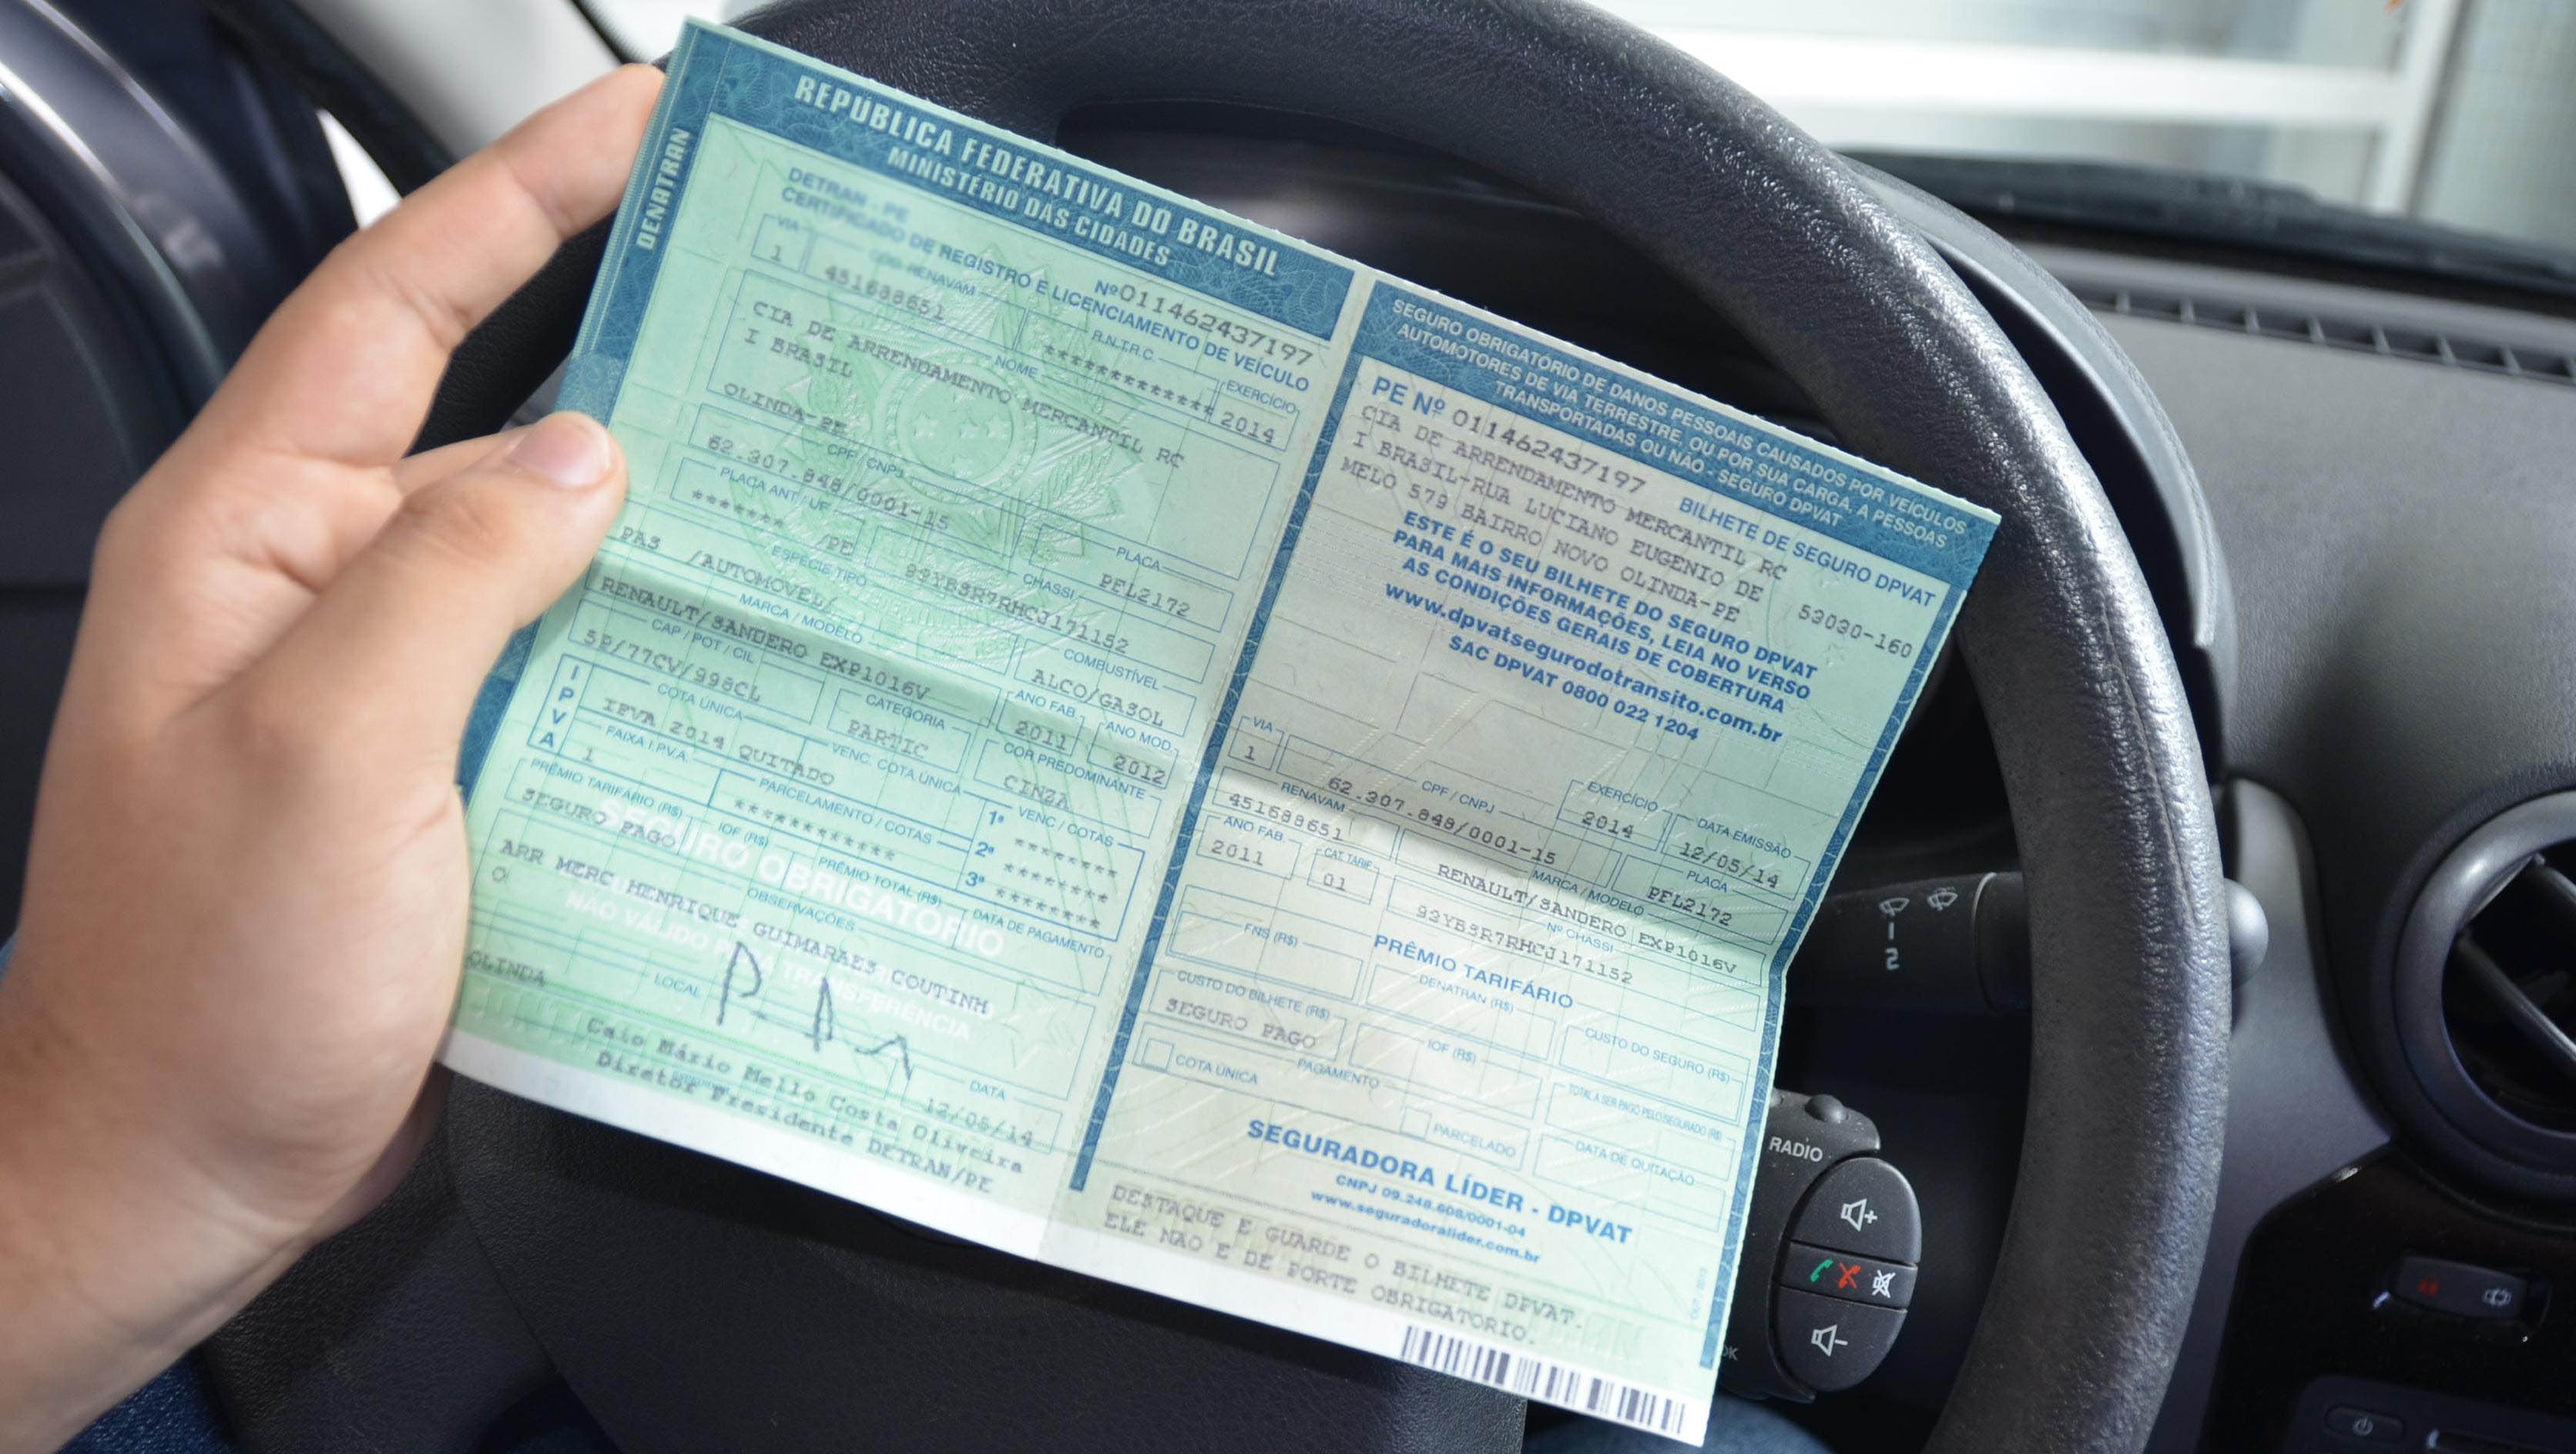 DENATRAN
REPÚBLICA FEDERATIVA DO BRASIL
MINISTÉRIO DAS CIDADES
DETRAN - PE
Nº 011462437197
CERTIFICADO DE REGISTRO E LICENCIAMENTO DE VEÍCULO
VIA
RENAVAM
R.N.T.R.C.
EXERCÍCIO
1
451688651
************
2014
NOME
CIA DE ARRENDAMENTO MERCANTIL RC
I BRASIL
OLINDA-PE
CPF / CNPJ
PLACA
62.307.848/0001-15
PFL2172
PLACA ANT / UF
CHASSI
******* /PE
93YBSR7RHCJ171152
ESPÉCIE TIPO
COMBUSTÍVEL
PAS /AUTOMOVEL/
ALCO/GASOL
MARCA / MODELO
ANO FAB.
ANO MOD.
RENAULT/SANDERO EXP1016V
2011
2012
CAP / POT / CIL
CATEGORIA
COR PREDOMINANTE
5P/77CV/998CL
PARTIC
CINZA
IPVA
COTA ÚNICA
VENC. COTA ÚNICA
VENC / COTAS
IPVA 2014 QUITADO
1ª ********
FAIXA I.P.V.A.
PARCELAMENTO / COTAS
2ª ********
1
************
3ª ********
PRÊMIO TARIFÁRIO (R$)
IOF (R$)
PRÊMIO TOTAL (R$)
DATA DE PAGAMENTO
SEGURO PAGO
SEGURO OBRIGATÓRIO
OBSERVAÇÕES
ARR MERC HENRIQUE GUIMARAES COUTINH
O
NÃO VÁLIDO PARA TRANSFERÊNCIA
LOCAL
DATA
OLINDA
12/05/14
Caio Mário Mello Costa Oliveira
Diretor Presidente DETRAN/PE
SEGURO OBRIGATÓRIO DE DANOS PESSOAIS CAUSADOS POR VEÍCULOS
AUTOMOTORES DE VIA TERRESTRE, OU POR SUA CARGA, A PESSOAS
TRANSPORTADAS OU NÃO - SEGURO DPVAT
PE Nº 011462437197
BILHETE DE SEGURO DPVAT
CIA DE ARRENDAMENTO MERCANTIL RC
I BRASIL-RUA LUCIANO EUGENIO DE
MELO 579 BAIRRO NOVO OLINDA-PE
53030-160
ESTE É O SEU BILHETE DO SEGURO DPVAT
PARA MAIS INFORMAÇÕES, LEIA NO VERSO
AS CONDIÇÕES GERAIS DE COBERTURA
www.dpvatsegurodotransito.com.br
SAC DPVAT 0800 022 1204
EXERCÍCIO
DATA EMISSÃO
2014
12/05/14
VIA
CPF / CNPJ
PLACA
1
62.307.848/0001-15
PFL2172
RENAVAM
MARCA / MODELO
451688651
RENAULT/SANDERO EXP1016V
ANO FAB.
CAT. TARIF
Nº CHASSI
2011
01
93YBSR7RHCJ171152
PRÊMIO TARIFÁRIO
FNS (R$)
DENATRAN (R$)
CUSTO DO SEGURO (R$)
CUSTO DO BILHETE (R$)
IOF (R$)
TOTAL A SER PAGO PELO SEGURADO (R$)
SEGURO PAGO
PAGAMENTO
DATA DE QUITAÇÃO
COTA ÚNICA
PARCELADO
SEGURADORA LÍDER - DPVAT
CNPJ 09.248.608/0001-04
www.seguradoralider.com.br
DESTAQUE E GUARDE O BILHETE DPVAT.
ELE NAO E DE PORTE OBRIGATORIO.
1
2
RADIO
OK